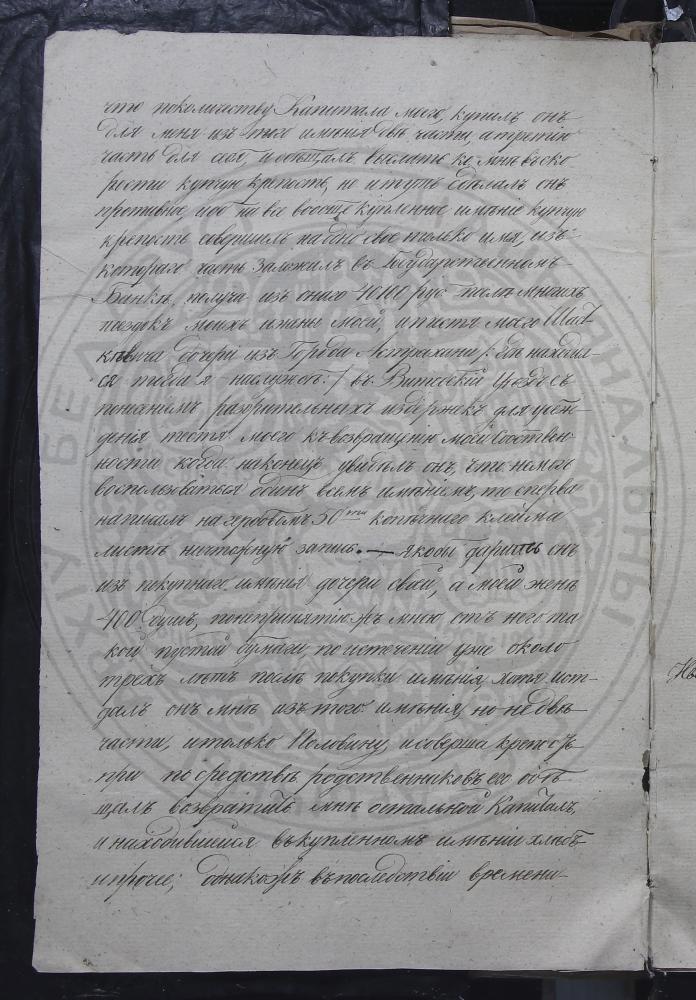 что поколичеству Капитала моего, купилъ онъ
для меня изъ того имѣнія двѣ части, а третію
часть для себя, и обѣщалъ выслать ко мнѣ въ ско
рости купчую крепость, но и тутъ сдѣлалъ онъ
противное, ибо на все вообще купленное имѣніе купчую
крепость совершилъ на одно свое только имя, изъ
котораго часть заложилъ въ Государственномъ
Банкѣ, получа изъ онаго руб. многихъ
поездкъ моихъ и жены моей, и тестя моего
дочери изъ Города Астрахани /: где находил
ся тогда я наслужбѣ :/ въ Витебскій Уездъ съ
разорительныхъ издержекъ для убѣж
денія тестя моего къ возвращенію моей Собствен
ности когда наконецъ увидѣлъ онъ, что неможе
воспользоваться одинъ всемъ имѣніемъ, то сперва
написалъ на гербовомъ 50ти копѣечнаго клейма
листѣ запись. — якобы даритъ онъ
изъ покупнаго имѣнія дочери своей, а моей женѣ
400 душъ, понепринятію жъ мною отъ него та
кой пустой бумаги, по истеченіи уже около
трехъ лѣтъ послѣ покупки имѣнія, хотя и от
далъ онъ мнѣ изъ того имѣнія, но не двѣ
части, и только Половину, и соверша крепость
при посредствѣ родственниковъ его обѣ
щалъ возвратить мнѣ остальной Капиталъ,
и находившейся въ купленномъ имѣніи хлѣбъ
и прочее; однакожъ въ последствіи времени
БЕЛ НАЦЫЯНАЛЬНЫ